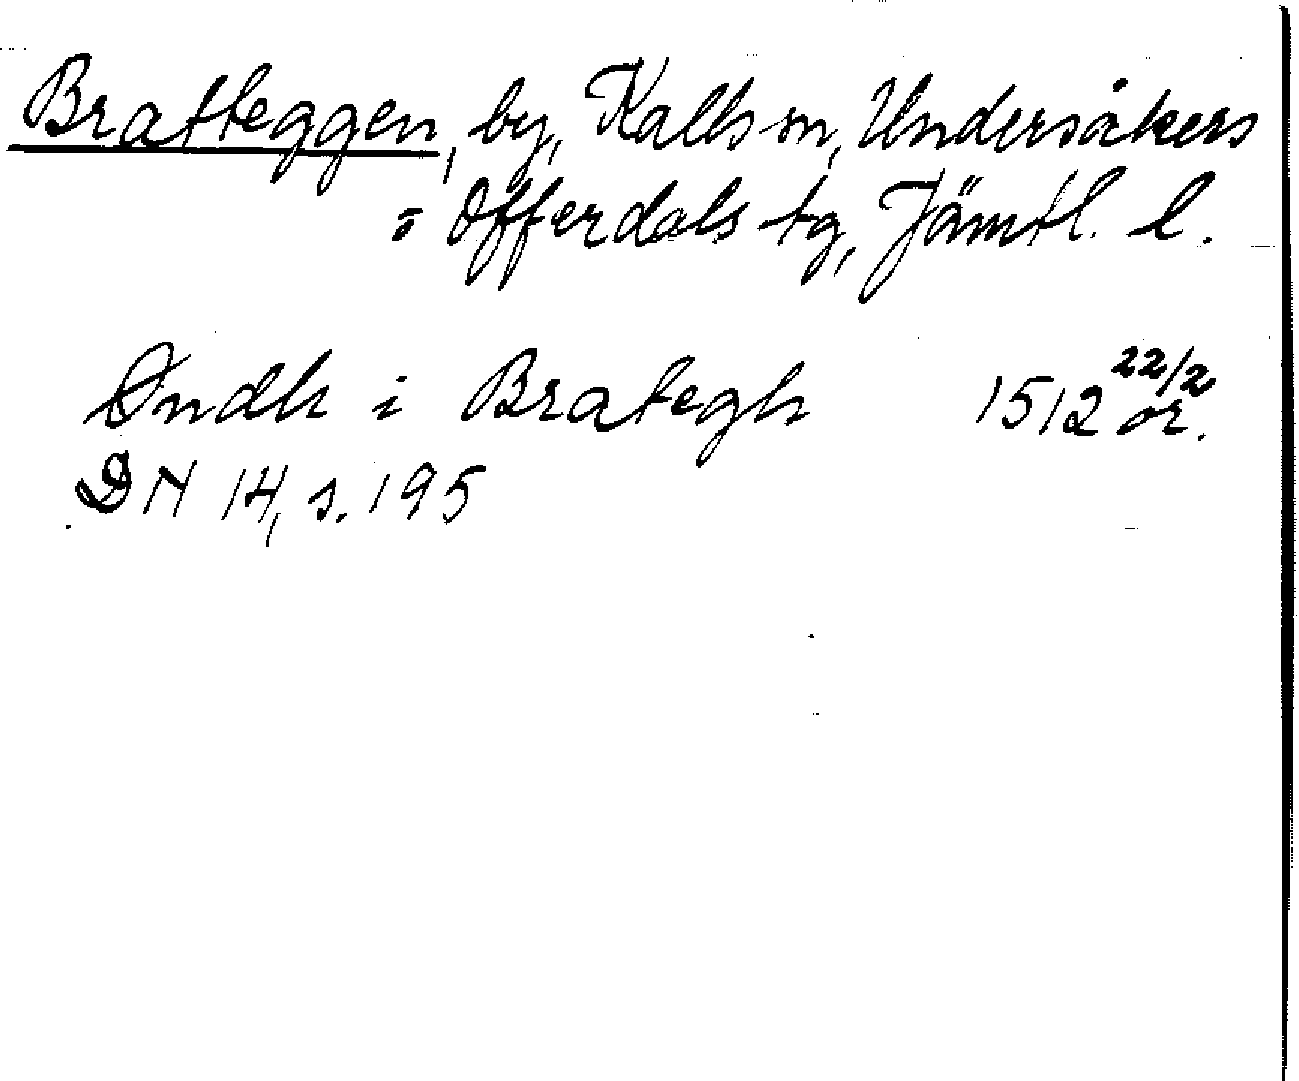 Bratteggen, by, Kalls sn, Undersåkers
= Offerdals tg, Jämtl. l.
Öndh i Brategh 1512 22/2 or.
DN 14, s. 195